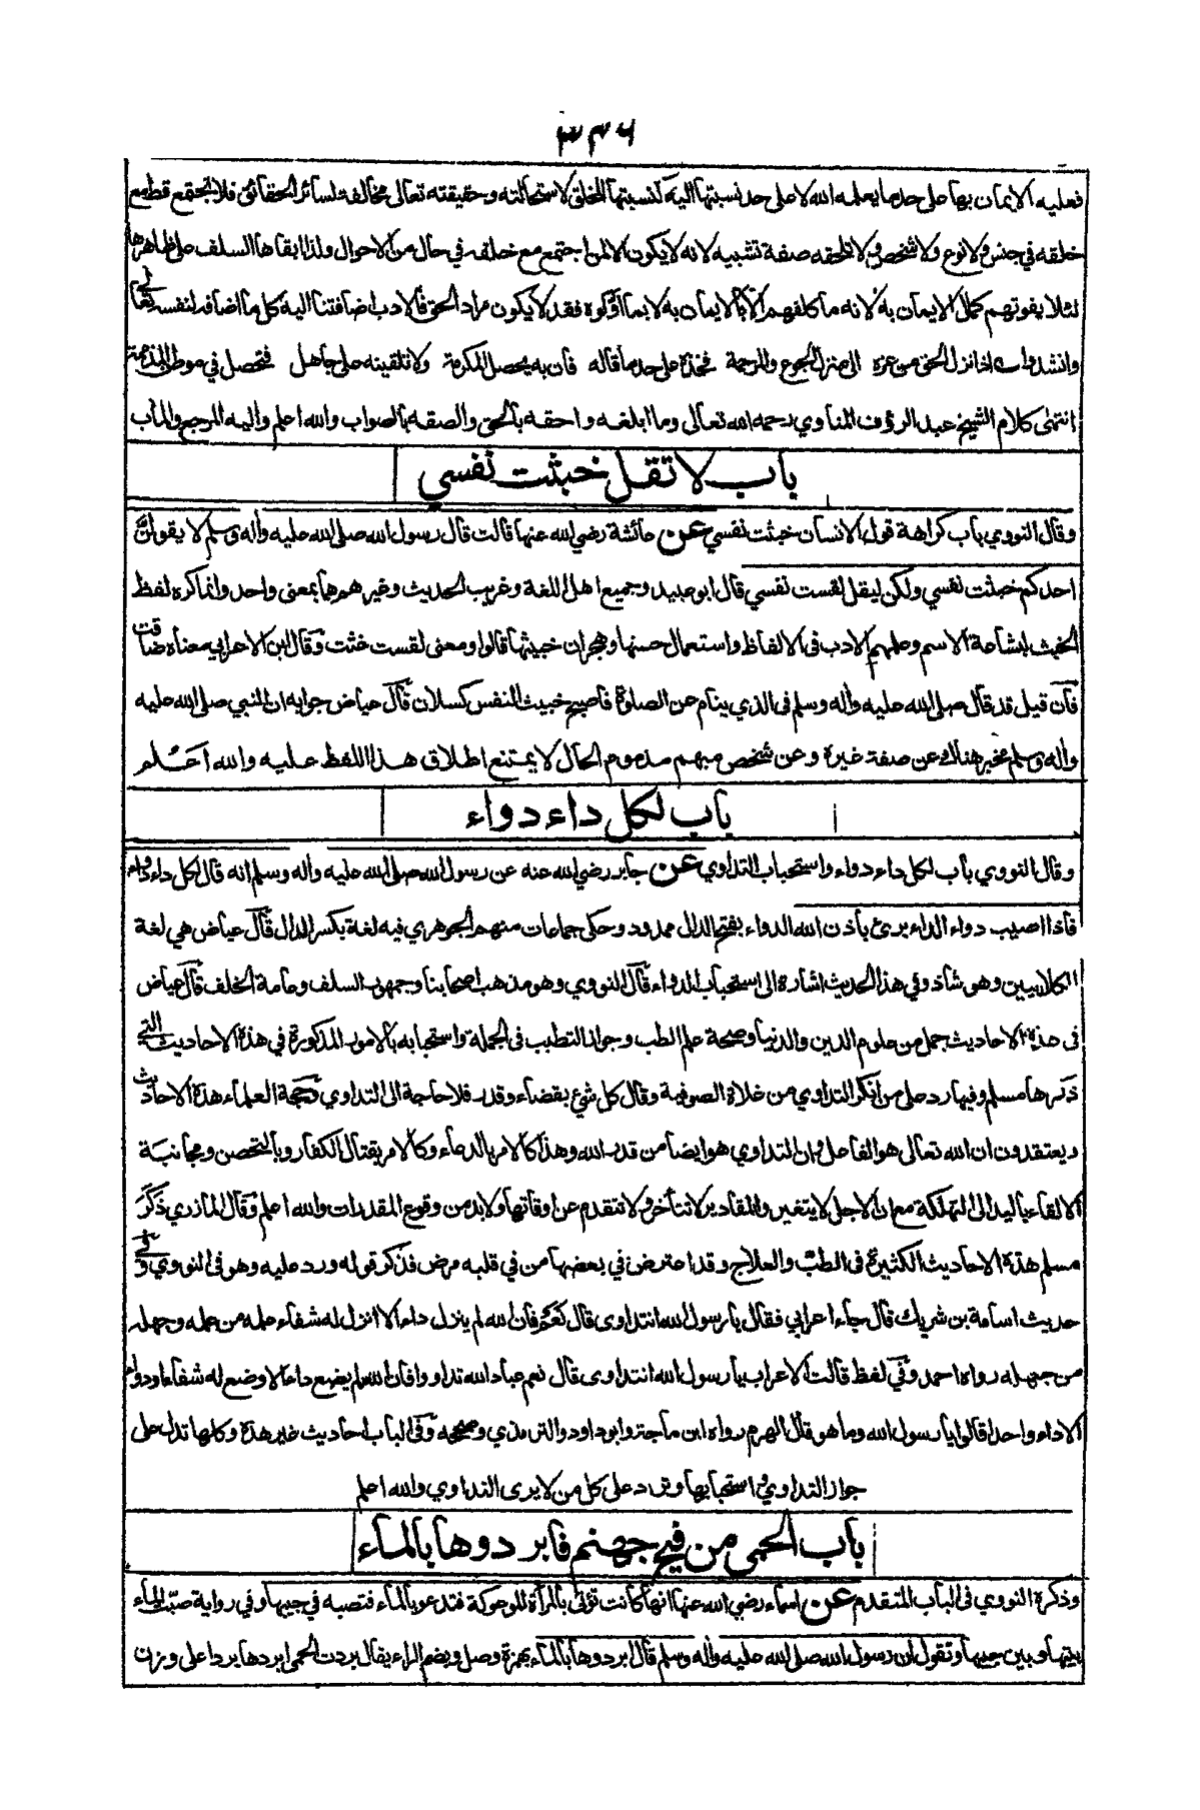 ٣٣٤٦
فعليه الايمان بها على حد ما يعلمه الله لا على حد نسبتها اليه كنسبتها الى خلق لاستحالته وحقيقته تعالى مخالفة لسائر الحقائق فلا يجتمع قط مع
خلقه في جنس ولا نوع ولا شخص ولا تلحقه صفة تشبيه لانه لا يكون الا لمن اجتمع مع خلقه في حال من الاحوال ولذا ابقاها السلف على ظاهرها
لئلا يفوتهم كمال الايمان به لانه ما كلفهم الا بالايمان به لا بما اولوه فقد لا يكون مراد الحق فالادب اضافتنا اليه كل ما اضافه لنفسه تعالى
وانشدوا اذا نزل الحق من عزه الى منزل الجوع والمرحمة فخذه على حد ما قاله فان به يحصل المكرمة ولا تلقينه على جاهل فتحصل في موطن المذمة
انتهى كلام الشيخ عبد الرؤف المناوي رحمه الله تعالى وما ابلغه واحقه بالحق والصقه بالصواب والله اعلم واليه المرجع والمآب
باب لا تقل خبثت نفسي
وقال النووي باب كراهة قول الانسان خبثت نفسي عن عائشة رضي الله عنها قالت قال رسول الله صلى الله عليه وأله وسلم لا يقولن
احدكم خبثت نفسي ولكن ليقل لقست نفسي قال ابو عبيد وجميع اهل اللغة وغريب الحديث وغيرهم هما بمعنى واحد وانما كره لفظ
الخبث لبشاعة الاسم وعلمهم الادب في الالفاظ واستعمال حسنها وهجران خبيثها قالوا ومعنى لقست غثت وقال ابن الاعرابي معناه ضاقت
فان قيل قد قال صلى الله عليه واله وسلم في الذي ينام عن الصلوة فاصبح خبيث النفس كسلان قال عياض جوابه ان النبي صلى الله عليه
واله وسلم مخبر هناك عن صفة غيره وعن شخص مبهم مذموم الحال لا يمتنع اطلاق هذا اللفظ عليه والله اعلم
باب لكل داء دواء
وقال النووي باب لكل داء دواء واستحباب التداوي عن جابر رضي الله عنه عن رسول الله صلى الله عليه واله وسلم انه قال لكل داء دواء
فاذا اصيب دواء الداء برئ باذن الله الدواء بفتح الدال ممدود وحكى جماعات منهم الجوهري فيه لغة بكسر الدال قال عياض هي لغة
الكلابيين وهو شاذ وفي هذا الحديث اشارة الى استحباب الدواء قال النووي وهو مذهب اصحابنا وجمهور السلف وعامة الخلف قال عياض
في هذه الاحاديث جمل من علوم الدين والدنيا وصحة علم الطب وجواز التطبب في الجملة واستحبابه بالامور المذكورة في هذه الاحاديث التي
ذكرها مسلم وفيها رد على من انكر التداوي من غلاة الصوفية وقال كل شئ بقضاء وقدر فلا حاجة الى التداوي وحجة العلماء هذه الاحاديث
ويعتقدون ان الله تعالى هو الفاعل وان التداوي هو ايضا من قدر الله وهذا كالامر بالدعاء وكالامر بقتال الكفار وبالتحصن ومجانبة
الالقاء باليد الى التهلكة مع ان الاجل لا يتغير والمقادير لا تتأخر ولا تتقدم عن اوقاتها ولابد من وقوع المقدرات والله اعلم وقال المازري ذكر
مسلم هذه الاحاديث الكثيرة في الطب والعلاج وقد اعترض في بعضها من في قلبه مرض فذكر قوله ورد عليه وهو في النووي وفي
حديث اسامة بن شريك قال جاء اعرابي فقال يا رسول الله انتداوى قال نعم فان الله لم ينزل داء الا انزل له شفاء علمه من علمه وجهله
من جهله رواه احمد وفي لفظ قالت الاعراب يا رسول الله انتداوى قال نعم عباد الله تداووا فان الله لم يضع داء الا وضع له شفاء او دواء
الا داء واحدا قالوا يا رسول الله وما هو قال الهرم رواه ابن ماجة وابو داود والترمذي وصححه وفي الباب احاديث غير هذه وكلها تدل على
جواز التداوي واستحبابها وترد على كل من لا يرى التداوي والله اعلم
باب الحمى من فيح جهنم فابردوها بالماء
وذكره النووي في الباب المتقدم عن اسماء رضي الله عنها انها كانت تؤتى بالمرأة الموعوكة فتدعو بالماء فتصبه في جيبها وفي رواية صبت الماء
بينها وبين جيبها وتقول ان رسول الله صلى الله عليه وأله وسلم قال ابردوها بالماء بهمزة وصل وبضم الراء يقال بردت الحمى ابردها بردا على وزن